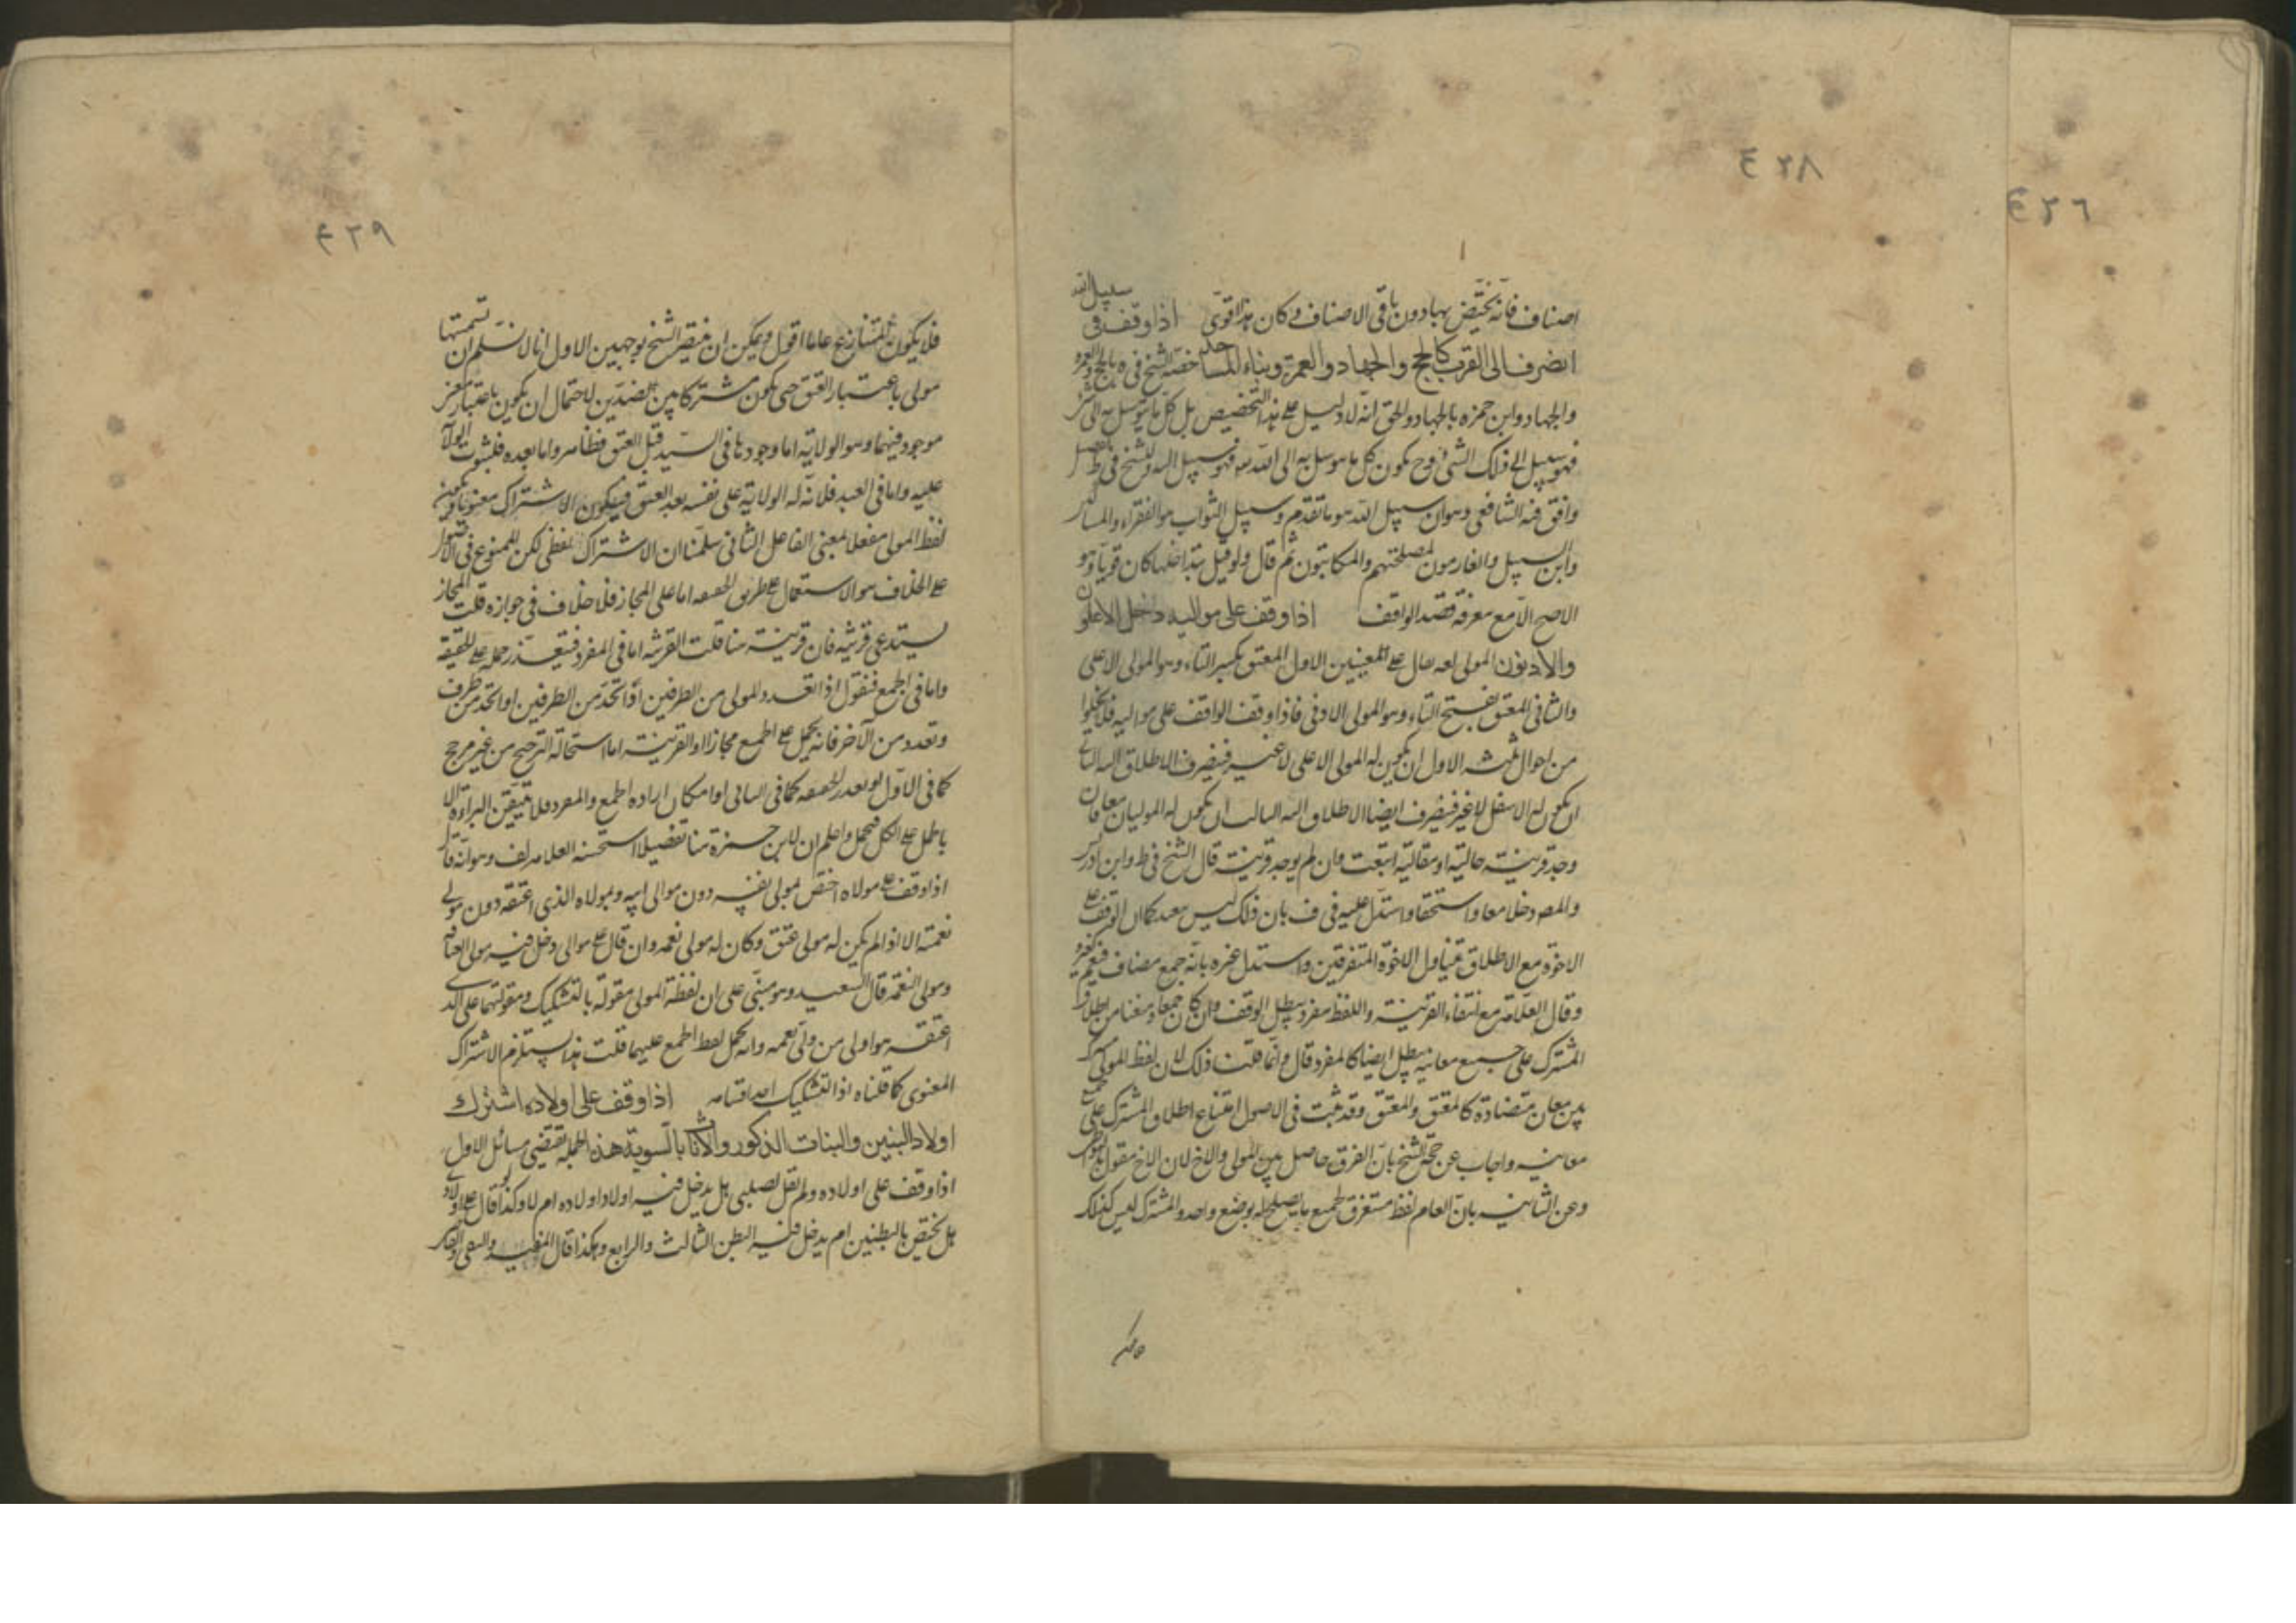 ٤٢٦
٤٢٨
اصناف فانه يختص بها دون باقى الاصناف وكان هذا قوى اذا وقف فى سبيل الله
انصرف الى القرب كالحج والجهاد والعمرة وبناء المساجد خصه الشيخ فى بالحج والعمرة
والجهاد وابن حمزه بالجهاد والحق انه لا دليل على هذا التخصيص بل كل ما يتوسل به الى شئ
فهو سبيل الى ذلك الشئ وح يكون كل ما يتوسل به الى الله فهو سبيل الله وللشيخ فى ط
وافق فيه الشافعى وهو ان سبيل الله هو ما تقدم وسبيل الثواب هو الفقراء والمساكين
وابن السبيل والغارمون لمصلحتهم والمكاتبون ثم قال ولو قيل بتداخلها كان قويا وهو
الاصح الا مع معرفة قصد الواقف اذا وقف على مواليه دخل الاعلون
والادنون المولى يقال على المعنيين الاول المعتق بكسر التاء وهو المولى الاعلى
والثانى المعتق بفتح التاء وهو المولى الادنى فاذا وقف الواقف على مواليه فلا يخلوا
من احوال ثلثه الاول ان يكون له المولى الاعلى لا غير فينصرف الاطلاق اليه الثانى
ان يكون له الاسفل لا غير فينصرف ايضا الاطلاق اليه الثالث ان يكون له الموليان معا فان
وجد قرينة حالية او مقالية اتبعت وان لم يوجد قرينة قال الشيخ فى ط وابن ادريس
والمص دخلا معا واستحقا واستدل عليه فى ف بان ذلك كان الوقف على
الاخوة مع الاطلاق يتناول الاخوة المتفرقين واستدل غيره بانه جمع مضاف فيعم كغيره
وقال العلامة مع انتفاء القرينة واللفظ مفرد يبطل الوقف وان كان جمعا ومنعنا من اطلاق
المشترك على جميع معانيه يبطل ايضا كالمفرد قال وانما قلنا ذلك لان لفظ المولى مشترك
بين معان متضادة كالمعتق والمعتق وقد ثبت فى الاصول امتناع اطلاق المشترك على جميع
معانيه واجاب عن حجة الشيخ بان الفرق حاصل بين المولى والاخ لان الاخ مقول بالتواطى
وعن الثانيه بان العام لفظ مستغرق لجميع ما يصلح له بوضع واحد والمشترك ليس كذلك
٤٢٩
فلا يكون المتنازع عاما اقول ويمكن ان ينتصر الشيخ بوجهين الاول انا لا نسلم ان تسميتها
مولى باعتبار العتق حتى يكون مشتركا بين الضدين لاحتمال ان يكون باعتبار معنى
موجود فيهما وهو الولاية اما وجودها فى السيد قبل العتق فظاهر واما بعده فلثبوت الولاء
عليه واما فى العبد فلانه له الولاية على نفسه بعد العتق فيكون الاشتراك معنويا ويكون
لفظ المولى مفعلا بمعنى الفاعل الثانى سلمنا ان الاشتراك لفظى لكن الممنوع فى الاصول
على الخلاف هو الاستعمال على طريق الحقيقه اما على المجاز فلا خلاف فى جوازه قلت المجاز
يستدعى قرينه فان قرينة هنا قلت القرينه اما فى المفرد فتعذر حمله على الحقيقة
واما فى الجمع فنقول اذا تعدد المولى من الطرفين او اتحد من الطرفين او اتحد من طرف
وتعدد من الآخر فانه يحمل على الجمع مجازا والقرينة اما استحالة الترجيح من غير مرجح
كما فى الاول او تعذر الحقيقه كما فى الثانى او امكان ارادة الجمع والمفرد فلا يتيقن البراءة الا
بالحمل على الكل فيحمل واعلم ان لابن حمزة هنا تفصيلا استحسنه العلامه فى لف وهو انه قال
اذا وقف على مولاه اختص بمولى نفسه دون موالى ابيه وبمولاه الذى اعتقه دون مولى
نعمته الا اذا لم يكن له مولى عتق وكان له مولى نعمه وان قال على موالى دخل فيه مولى العتاقه
ومولى النعمه قال السعيد وهو مبنى على ان لفظة المولى مقولة بالتشكيك ومقوليتها على الذى
اعتقه هو اولى من ولى نعمه وانه يحمل لفظ الجمع عليهما قلت هذا يستلزم الاشتراك
المعنوى كما قلناه اذ التشكيك احد اقسامه اذا وقف على اولاده اشترك
اولاد البنين والبنات الذكور والاناث بالسوية هذه الجملة تقتضى مسائل الاول
اذا وقف على اولاده ولم يقل لصلبى هل يدخل فيه اولاد اولاده ام لا وكذا لو قال على اولاد
هل يختص بالبطنين ام يدخل فيه البطن الثالث والرابع وهكذا قال المفيد والتقى والقاضى